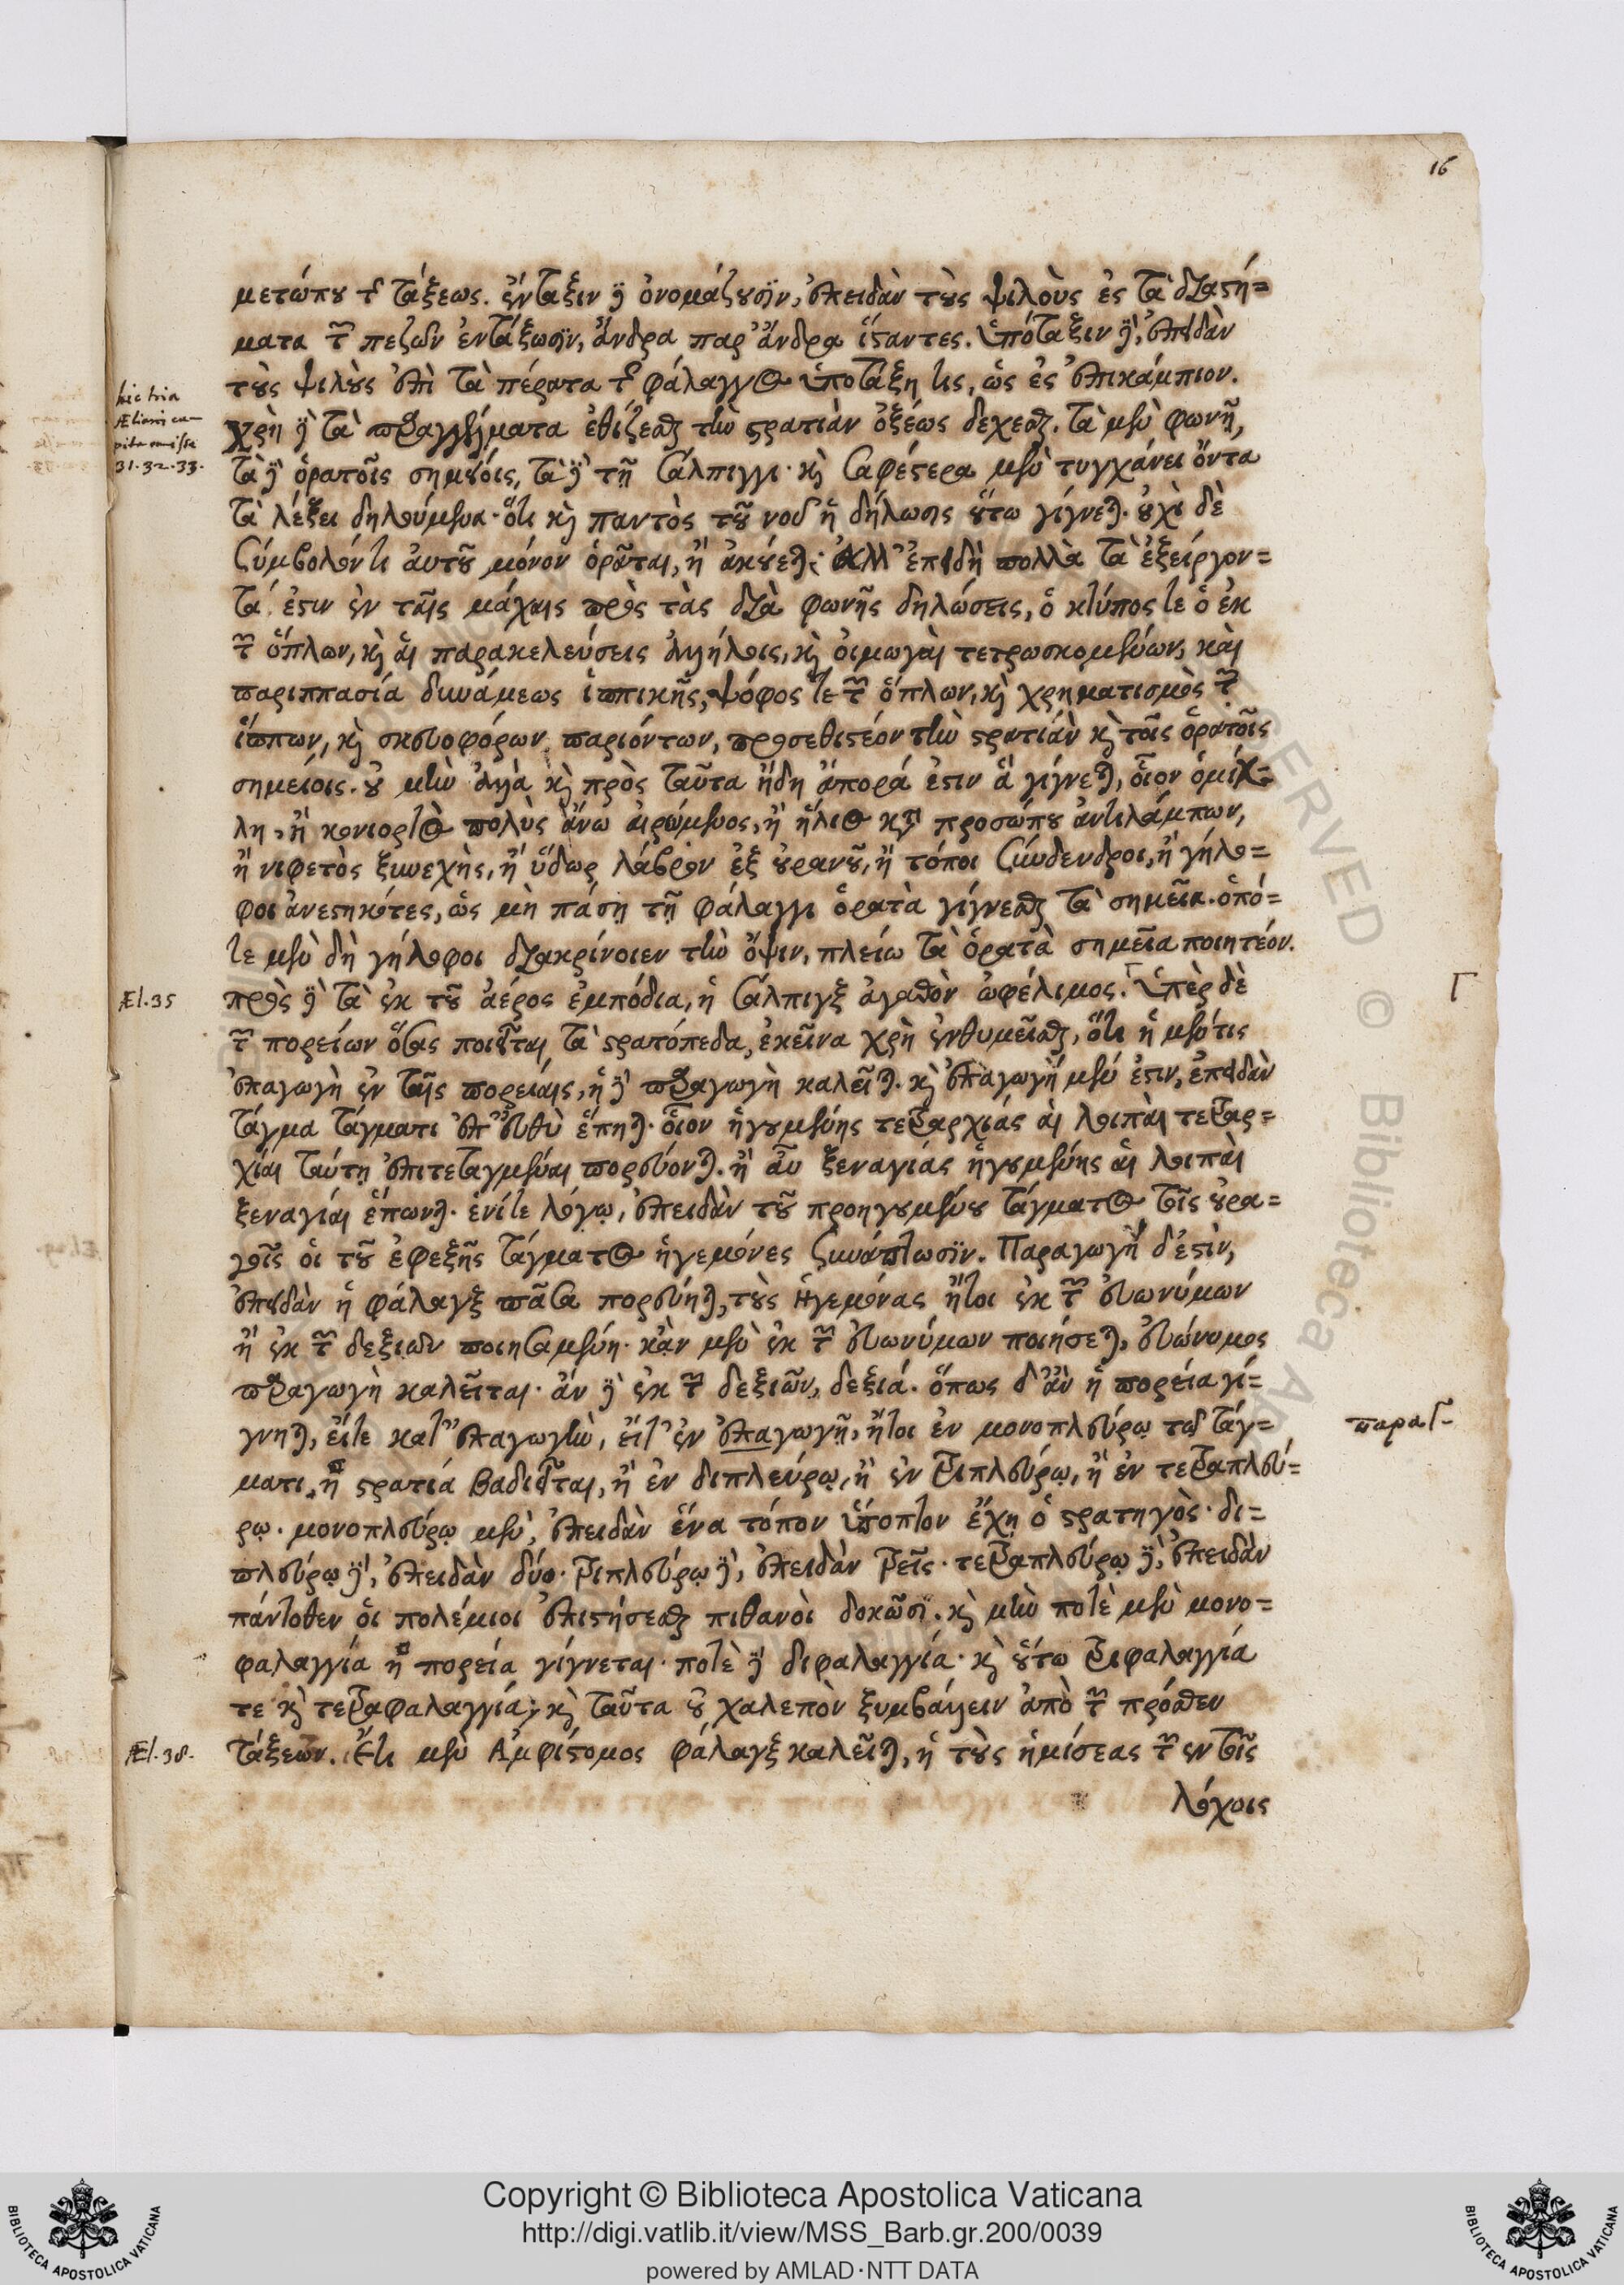 16
μετώπου τῆς τάξεως. ἔνταξιν δὲ ὀνομάζουσϊν, ἐπειδὰν τοὺς ψιλοὺς ἐς τὰ διαστή=
ματα τῶν πεζῶν ἐντάξωσϊν, ἄνδρα παρ' ἄνδρα ἵσταντες. ὑπόταξιν δὲ, ἐπειδὰν
τοὺς ψιλοὺς ἐπὶ τὰ πέρατα τῆς φάλαγγος ὑποτάξῃ τις, ὡς ἐς ἐπικάμπιον.
hic tria
Æliani ca-
pita omissa
31.32.33.
χρὴ δὲ τὰ παραγγέλματα ἐθίζεσθαι τὴν στρατιὰν ὀξέως δέχεσθαι. τὰ μὲν φωνῇ,
τὰ δὲ ὁρατοῖς σημείοις, τὰ δὲ τῇ σάλπιγγι· καὶ σαφέστερα μὲν τυγχάνει ὄντα
τὰ λέξει δηλούμενα· ὅτι καὶ παντὸς τοῦ νοῦ ἡ δήλωσις οὕτω γίγνεται. οὐχὶ δὲ
σύμβολόν τι αὐτοῦ μόνον ὁρᾶται, ἢ ἀκούεται· ἀλλ' ἐπειδὴ πολλὰ τὰ ἐξείργον=
τά ἐστιν ἐν ταῖς μάχαις πρὸς τὰς διὰ φωνῆς δηλώσεις, ὁ κτύπος τε ὁ ἐκ
τῶν ὅπλων, καὶ αἱ παρακελεύσεις ἀλλήλοις, καὶ οἰμωγαὶ τετρωσκομένων, καὶ
παριππασία δυνάμεως ἱππικῆς, ψόφος τε τῶν ὅπλων, καὶ χρηματισμὸς τῶν
ἵππων, καὶ σκευοφόρων παριόντων, προσεθιστέον τὴν στρατιὰν καὶ τοῖς ὁρατοῖς
σημείοις. οὐ μὴν ἀλλὰ καὶ πρὸς ταῦτα ἤδη ἄπορά ἐστιν ἃ γίγνεται, οἷον ὁμίχ=
λη, ἢ κονιορτὸς πολὺς ἄνω αἱρώμενος, ἢ ἥλιος κατὰ προσώπου ἀντιλάμπων,
ἢ νιφετὸς ξυνεχὴς, ἢ ὕδωρ λάβρον ἐξ οὐρανοῦ, ἢ τόποι σύνδενδροι, ἢ γήλο=
φοι ἀνεστηκότες, ὡς μὴ πάσῃ τῇ φάλαγγι ὁρατὰ γίγνεσθαι τὰ σημεῖα. ὁπό=
τε μὲν δὴ γήλοφοι διακρίνοιεν τὴν ὄψιν, πλείω τὰ ὁρατὰ σημεῖα ποιητέον.
Æl.35
πρὸς δὲ τὰ ἐκ τοῦ ἀέρος ἐμπόδια, ἡ σάλπιγξ ἀγαθὸν ὠφέλιμος. Γ Ὑπὲρ δὲ
Γ
τῶν πορείων ὅσας ποιεῖται τὰ στρατόπεδα, ἐκεῖνα χρὴ ἐνθυμεῖσθαι, ὅτι ἡ μέν τις
ἐπαγωγὴ ἐν ταῖς πορείαις, ἡ δὲ παραγωγὴ καλεῖται. καὶ ἐπαγωγὴ μέν ἐστιν, ἐπειδὰν
τάγμα τάγματι ἐπ' εὐθὺ ἕπηται. οἷον ἡγουμένης τετραρχίας αἱ λοιπαὶ τετραρ=
χίαι ταύτῃ ἐπιτεταγμέναι πορεύονται. ἢ αὖ ξεναγίας ἡγουμένης αἱ λοιπαὶ
ξεναγίαι ἕπωνται. ἑνί τε λόγῳ, ἐπειδὰν τοῦ προηγουμένου τάγματος τοῖς οὐρα=
γοῖς οἱ τοῦ ἐφεξῆς τάγματος ἡγεμόνες συνάπτωσϊν. Παραγωγὴ δ' ἐστὶν,
ἐπειδὰν ἡ φάλαγξ πᾶσα πορεύηται, τοὺς ἡγεμόνας ἤτοι ἐκ τῶν εὐωνύμων
ἢ ἐκ τῶν δεξιῶν ποιησαμένη. κἂν μὲν ἐκ τῶν εὐωνύμων ποιήσεται, εὐώνυμος
παραγωγὴ καλεῖται. ἂν δὲ ἐκ τῶν δεξιῶν, δεξιά. ὅπως δ' ἂν ἡ πορεία γί=
γνηται, εἴτε κατ' ἐπαγωγὴν, εἴτ' ἐν ἐπαγωγῇ, ἤτοι ἐν μονοπλεύρῳ τῷ τάγ=
παραΓ-
ματι, ἡ στρατιά βαδιεῖται, ἢ ἐν διπλεύρῳ, ἢ ἐν τριπλεύρῳ, ἢ ἐν τετραπλεύ=
ρῳ. μονοπλεύρῳ μὲν, ἐπειδὰν ἕνα τόπον ὕποπτον ἔχῃ ὁ στρατηγὸς· δι=
πλεύρῳ δὲ, ἐπειδὰν δύο· τριπλεύρῳ δὲ, ἐπειδὰν τρεῖς· τετραπλεύρῳ δὲ, ἐπειδὰν
πάντοθεν οἱ πολέμιοι ἐπιστήσεσθαι πιθανοὶ δοκῶσϊ. καὶ μὴν ποτὲ μὲν μονο=
φαλαγγία ἡ πορεία γίγνεται. ποτὲ δὲ διφαλαγγία. καὶ οὕτω τριφαλαγγία
τε καὶ τετραφαλαγγία, καὶ ταῦτα οὐ χαλεπὸν ξυμβάλλειν ἀπὸ τῶν πρόσθεν
Æl.38.
τάξεων. Ἔτι μὲν Ἀμφίστομος φάλαγξ καλεῖται, ἡ τοὺς ἡμίσεας τῶν ἐν τοῖς
λόχοις
Copyright © Biblioteca Apostolica Vaticana
http://digi.vatlib.it/view/MSS_Barb.gr.200/0039
powered by AMLAD·NTT DATA